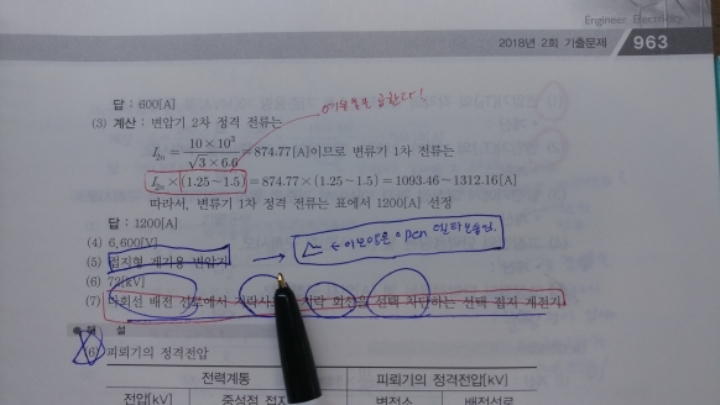 Engineer Electricity
2018년 2회 기출문제 963
답 : 600[A]
여유율을 곱한다!
(3) 계산 : 변압기 2차 정격 전류는
I₂ₙ = 10 × 10³ / √3 × 6.6 = 874.77[A]이므로 변류기 1차 전류는
I₂ₙ × (1.25 ~ 1.5) = 874.77 × (1.25 ~ 1.5) = 1093.46 ~ 1312.16[A]
따라서, 변류기 1차 정격 전류는 표에서 1200[A] 선정
답 : 1200[A]
(4) 6,600[V]
(5) 접지형 계기용 변압기 → ← 이모양은 open 델타
(6) 72[kV]
(7) 다회선 배전 에서 지락 회선을 선택 차단하는 선택 접지 계전기
해 설
(6) 피뢰기의 정격전압
전력계통 피뢰기의 정격전압[kV]
전압[kV] 중성점 변전소 배전선로